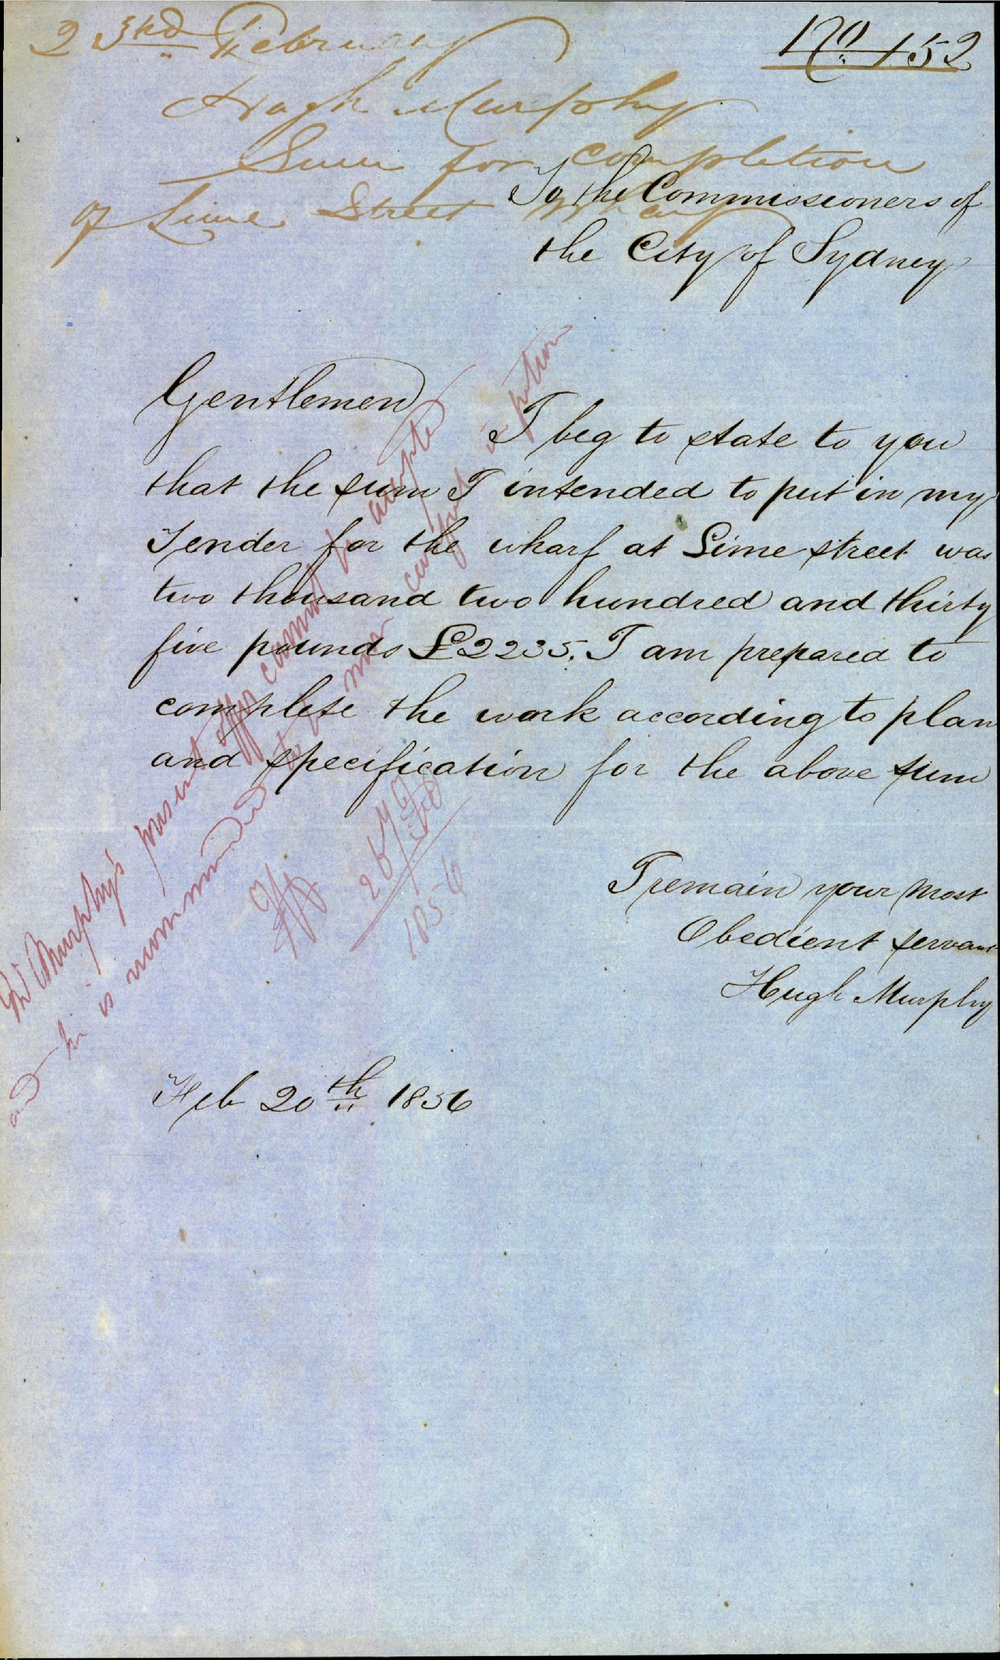 23rd February
No. 152
Hugh Murphy
Sum for completion
of Lime Street Wharf
To the Commissioners of
the City of Sydney
Gentlemen
I beg to state to you
that the sum I intended to put in my
Tender for the wharf at Lime street was
two thousand two hundred and thirty
five pounds £2235. I am prepared to
complete the work according to plan
and specification for the above sum
I remain your most
Obedient servant
Hugh Murphy
Feb 20th 1856
Mr Murphy's present offer cannot be accepted
and he is recommended to be more careful in
26
Feb
1856